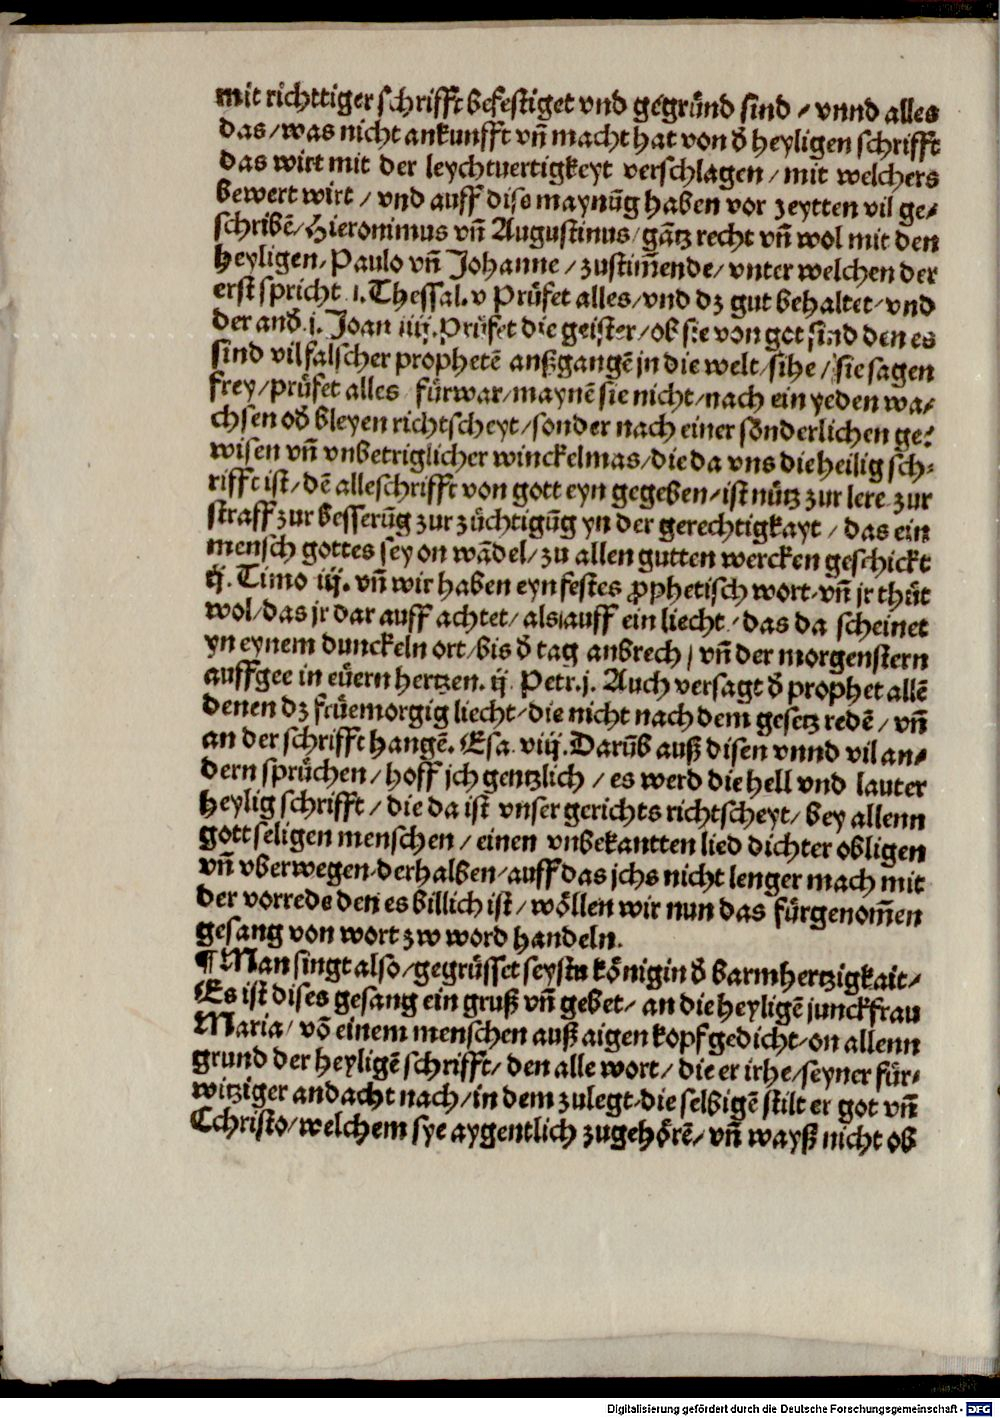 mit richttiger schrifft befestiget vnd gegründ sind / vnnd alles
das / was nicht ankunfft vñ macht hat von d̄ heyligen schrifft
das wirt mit der leychtuertigkeyt verschlagen / mit welchers
bewert wirt / vnd auff dise maynūg haben vor zeytten vil ge⸗
schribē / Hieronimus vñ Augustinus / gātz recht vñ wol mit den
heyligen / Paulo vñ Johanne / zustim̄ende / vnter welchen der
erst spricht .i. Thessal. v Prüfet alles / vnd dz gut behaltet / vnd
der and̄. j. Joan iiij. Prüfet die geister / ob sie von got sind den es
sind vil falscher prophetē außgangē jn die welt / sihe / sie sagen
frey / prüfet alles / fürwar / maynē sie nicht / nach ein yeden wa⸗
chsen od̄ bleyen richtscheyt / sonder nach einer sōnderlichen ge⸗
wisen vñ vnbetriglicher winckelmas / die da vns die heilig sch⸗
rifft ist / dē alle schrifft von gott eyn gegeben / ist nütz zur lere zur
straff zur besserūg zur züchtigūg yn der gerechtigkayt / das ein
mensch gottes sey on wādel / zu allen gutten wercken geschickt
ij. Timo iij. vñ wir haben eyn festes ꝓphetisch wort / vñ jr thüt
wol / das jr dar auff achtet / als auff ein liecht / das da scheinet
yn eynem dunckeln ort / bis d̄ tag anbrech / vñ der morgenstern
auffgee in eüern hertzen. ij. Petr. j. Auch versagt d̄ prophet allē
denen dz früemorgig liecht / die nicht nach dem gesetz redē / vñ
an der schrifft hangē. Esa. viij. Darūb auß disen vnnd vil an⸗
dern sprüchen / hoff jch gentzlich / es werd die hell vnd lauter
heylig schrifft / die da ist vnser gerichts richtscheyt / bey allenn
gottseligen menschen / einen vnbekantten lied dichter obligen
vñ vberwegen / derhalben / auff das jchs nicht lenger mach mit
der vorrede den es billich ist / wöllen wir nun das fürgenom̄en
gesang von wort zw word handeln.
¶ Man singt also / gegrüsset seystu königin d̄ barmhertzigkait /
Es ist dises gesang ein gruß vñ gebet / an die heyligē junckfrau
Maria / vō einem menschen auß aigen kopf gedicht / on allenn
grund der heyligē schrifft / den alle wort / die er irhe / seyner für⸗
witziger andacht nach / in dem zulegt / die selbigē stilt er got vñ
Cchristo / welchem sye aygentlich zugehörē / vñ wayß nicht ob
Digitalisierung gefördert durch die Deutsche Forschungsgemeinschaft - DFG